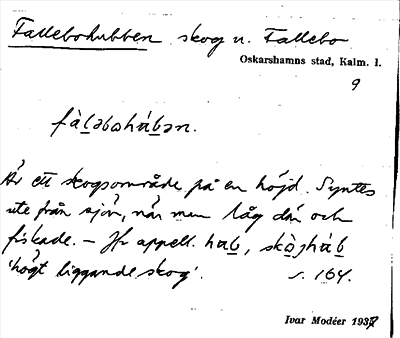 Fallebohubben skog n. Fallebo
Oskarshamns stad, Kalm. l.
9
fàləbohábən.
Är ett skogsområde på en höjd. Syntes
ute från sjön, när man låg där och
fiskade. – Jfr appell. hab, skòjháb
'högt liggande skog'. s. 164.
Ivar Modéer 1937